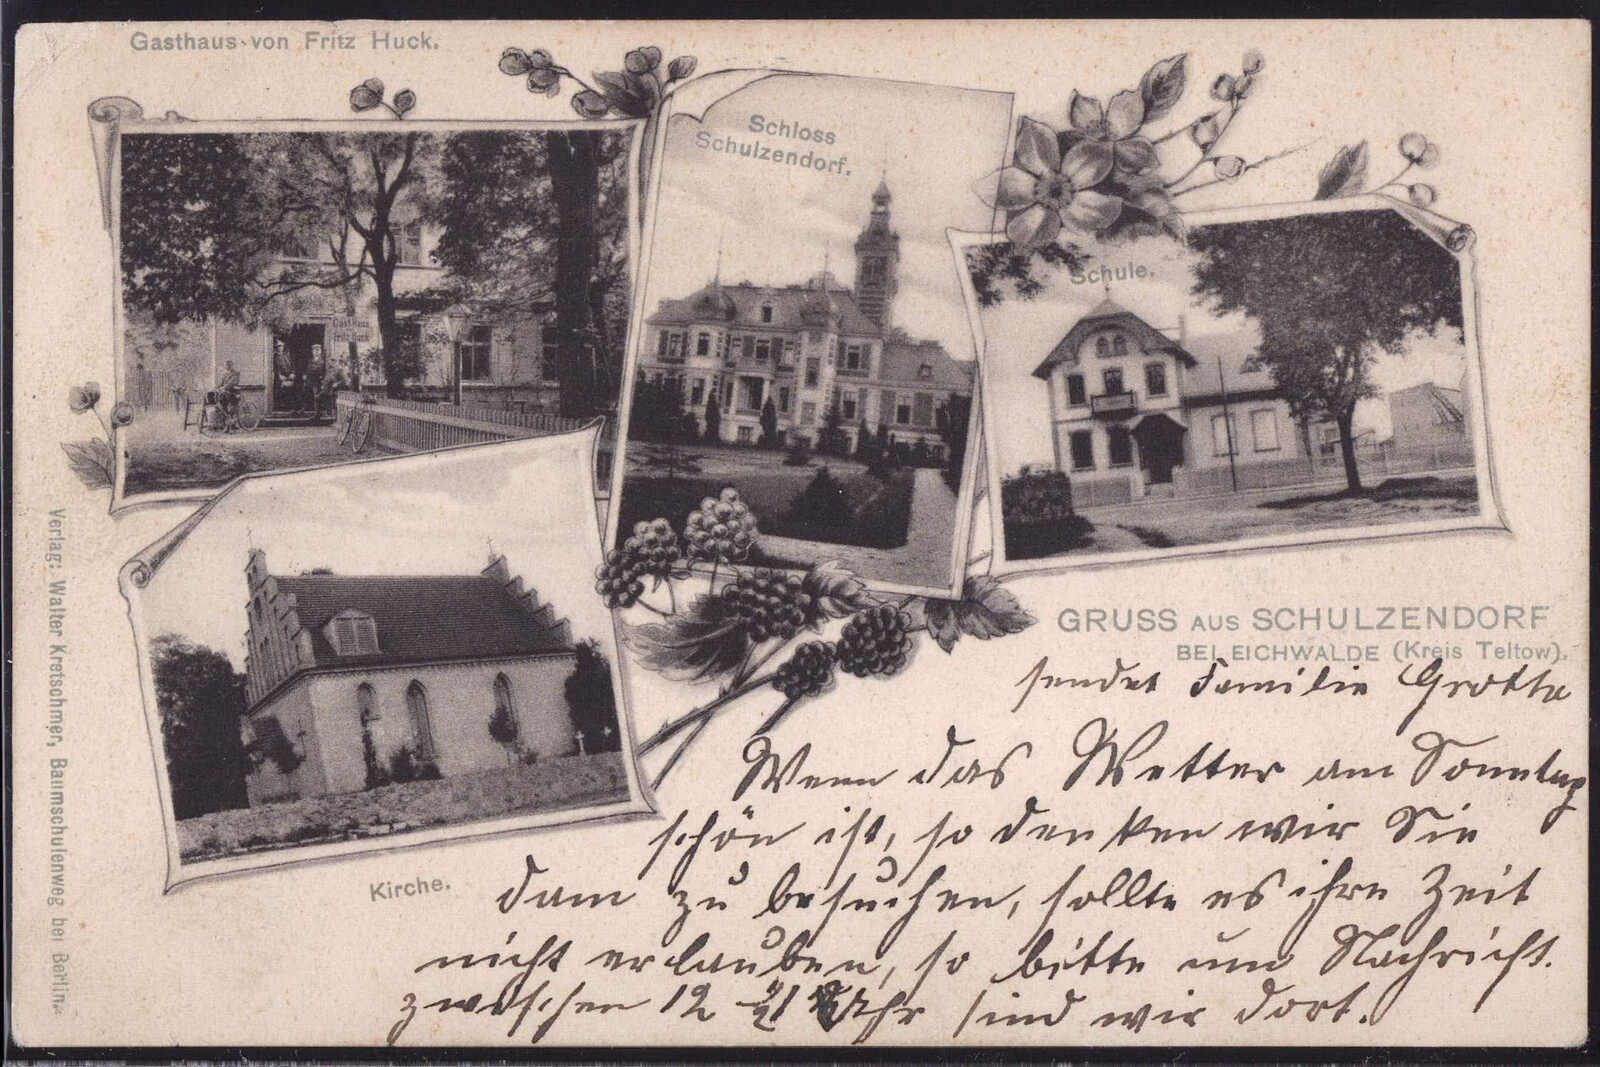 Gasthaus von Fritz Huck.
Schloss
Schulzendorf.
Schule.
Gasthaus
Fritz Huck
Kirche.
Verlag: Walter Kretschmer, Baumschulenweg bei Berlin.
GRUSS AUS SCHULZENDORF
BEI EICHWALDE (Kreis Teltow).
sendet Familie Grotte
Wenn das Wetter am Sonntag
schön ist, so denken wir Sie
dann zu besuchen, sollte es ihre Zeit
nicht erlauben, so bitte um Nachricht.
zwischen 12 - ½1 Uhr sind wir dort.